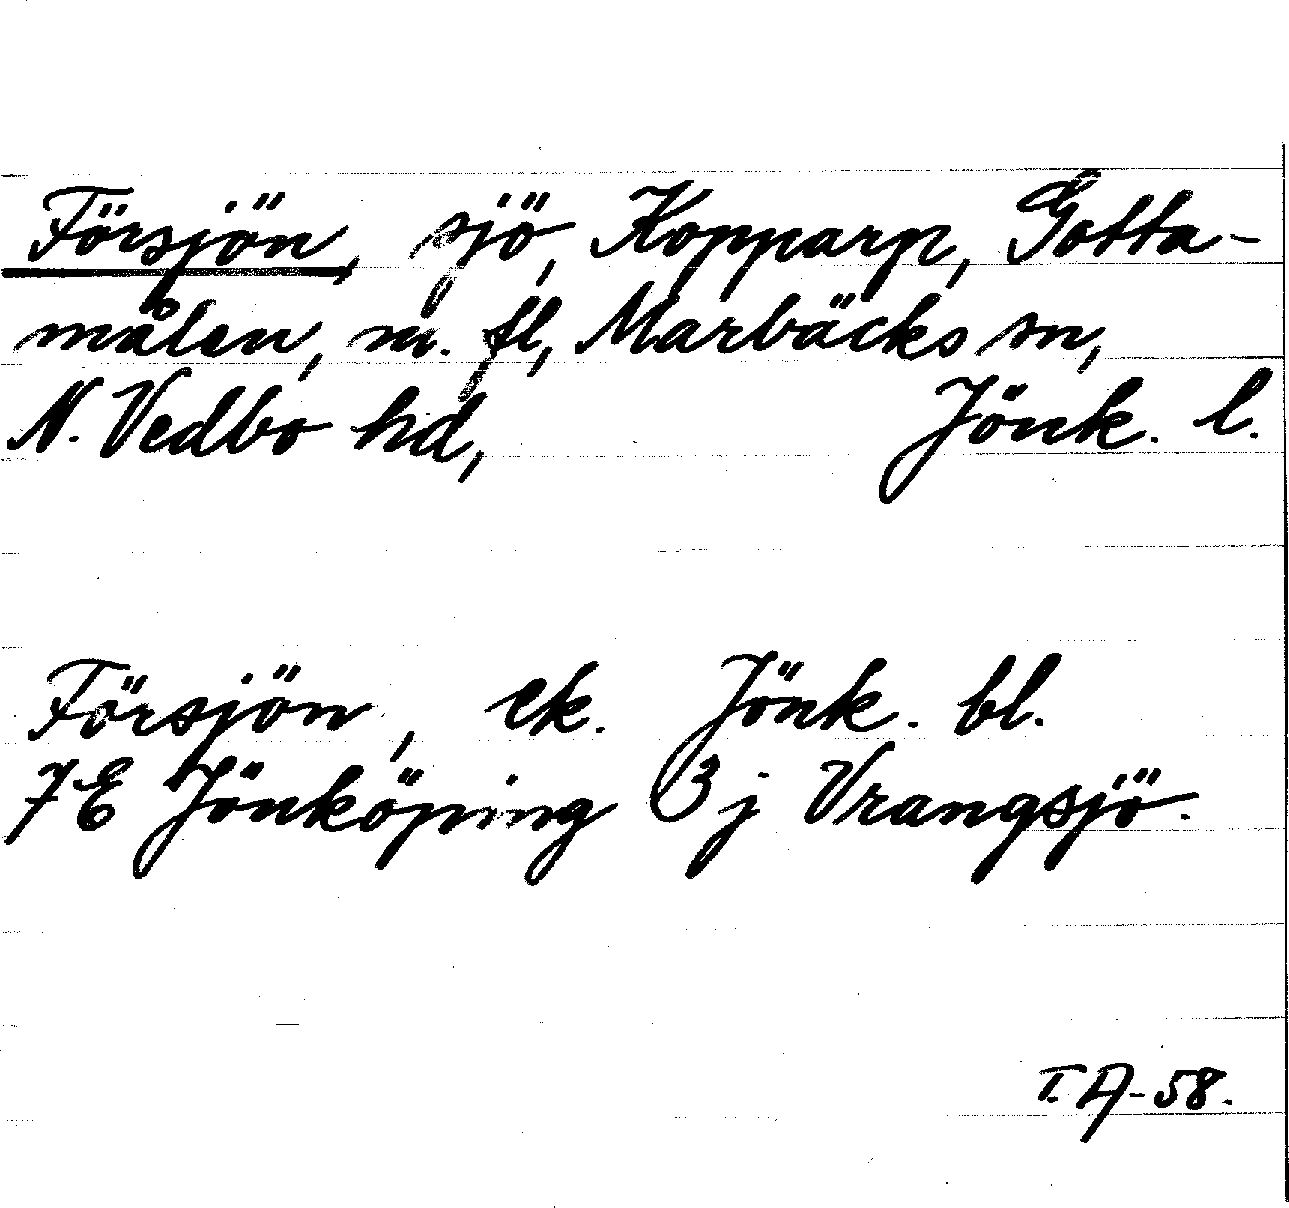 Försjön, sjö, Kopparp, Gotta-
målen, m. fl, Marbäcks sn,
N. Vedbo hd, Jönk. l.
Försjön, ek. Jönk. bl.
7E Jönköping 3j Vrangsjö.
T. A-58.